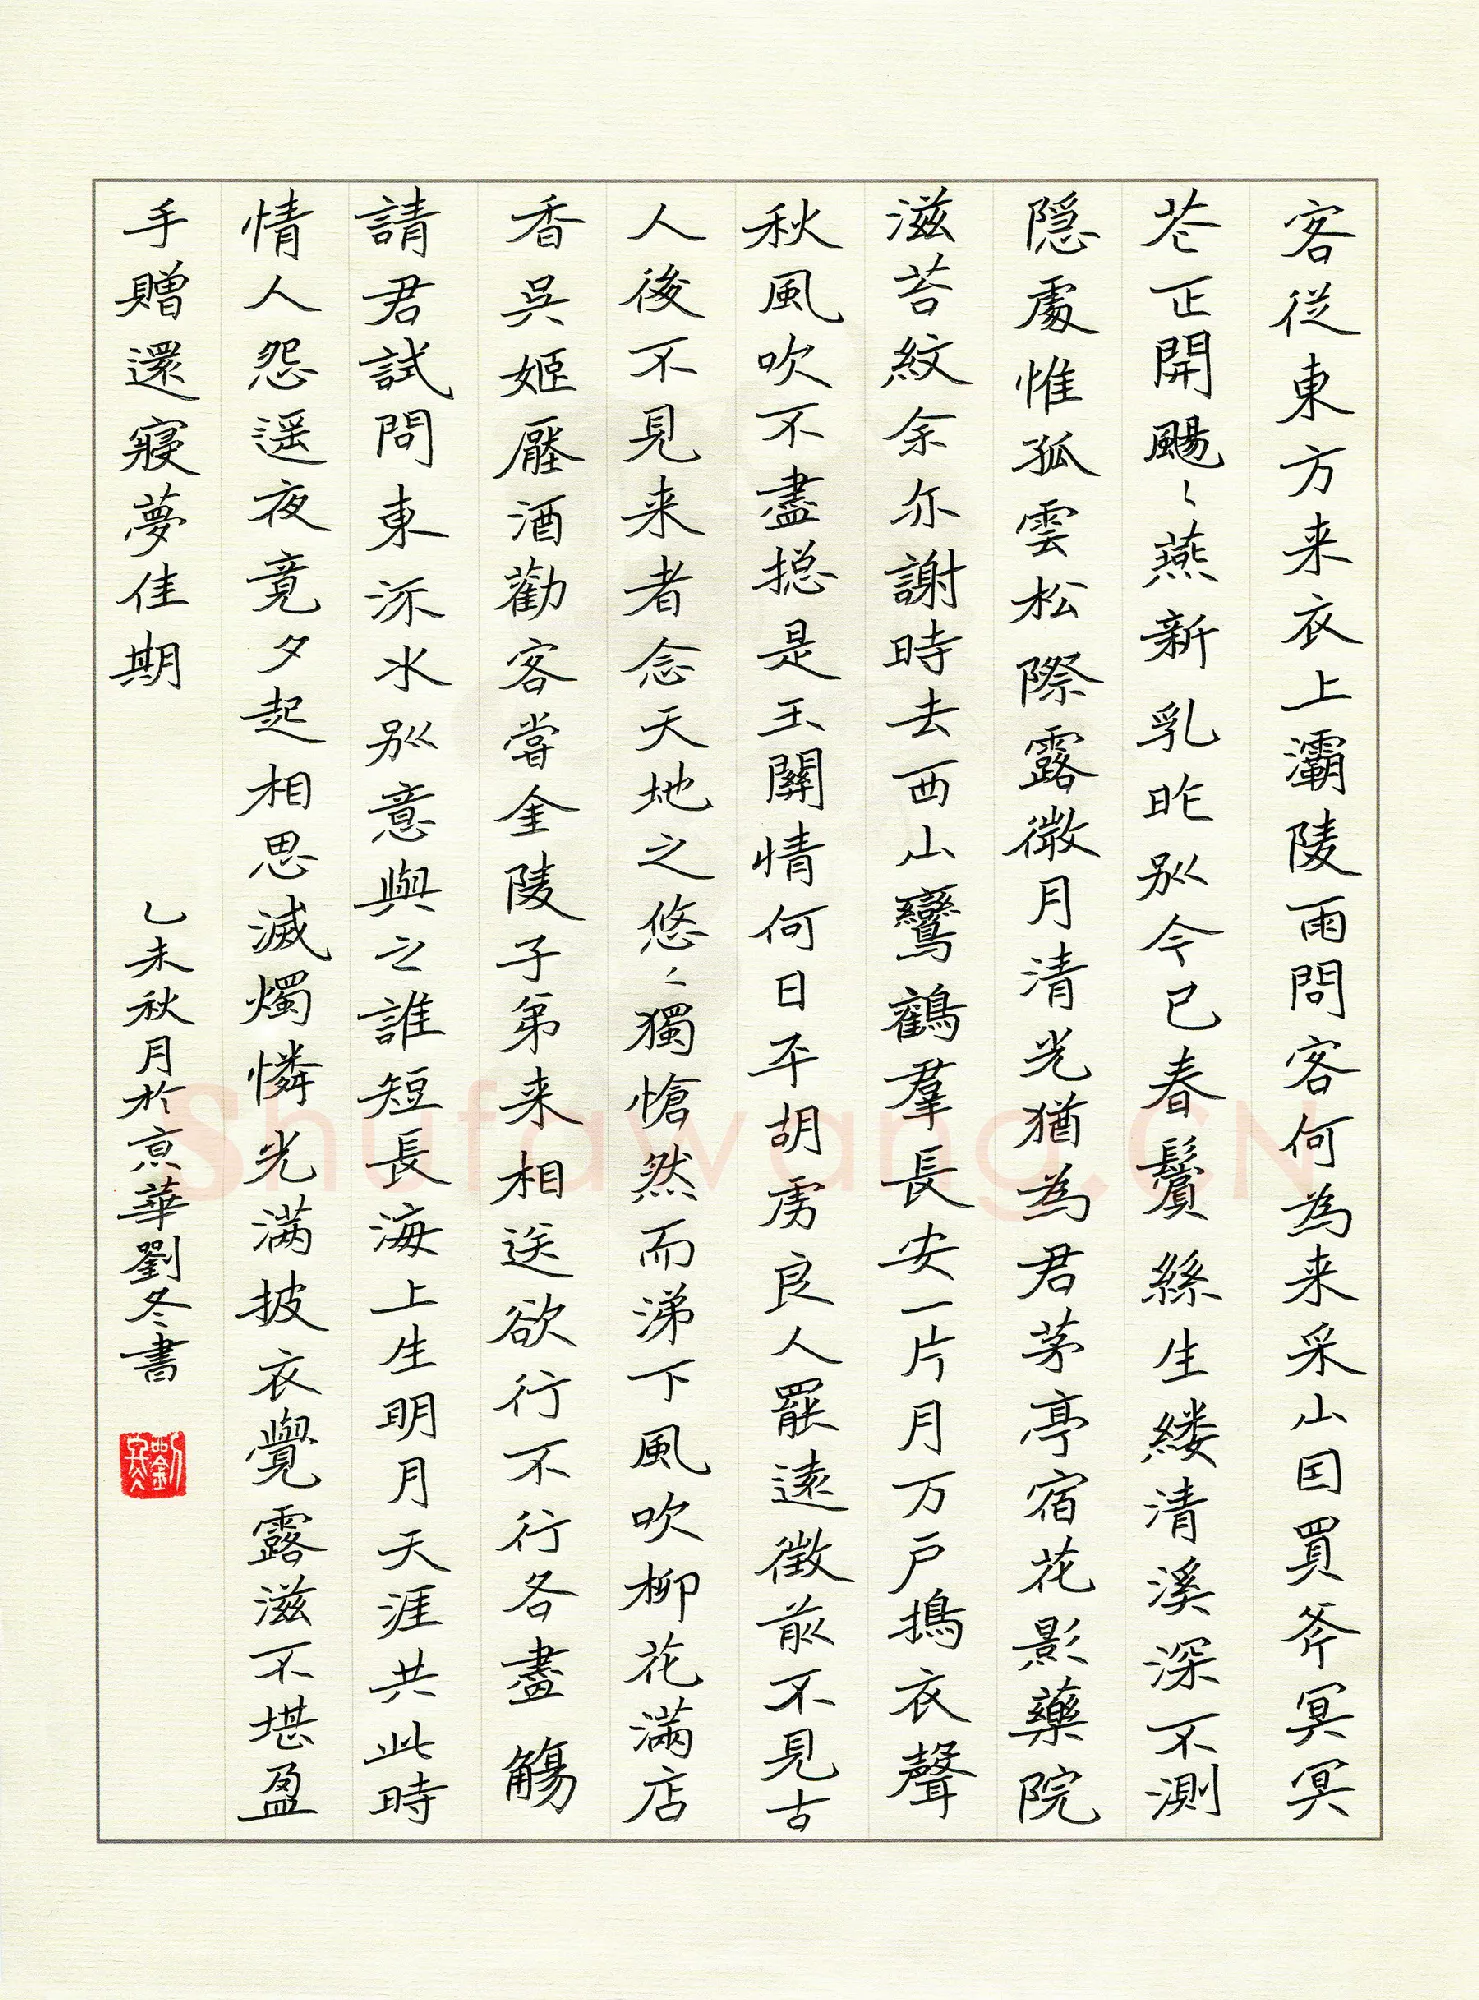 客從東方来衣上灞陵雨問客何為来采山因買斧冥冥
花正開颺〻燕新乳昨别今已春鬢絲生縷清溪深不測
隱處惟孤雲松際露微月清光猶為君茅亭宿花影藥院
滋苔紋余亦謝時去西山鸞鶴羣長安一片月万户擣衣聲
秋風吹不盡捴是玉關情何日平胡虏良人罷遠徵前不見古
人後不見来者念天地之悠〻獨愴然而涕下風吹柳花满店
香吳姬壓酒勸客嘗金陵子弟来相送欲行不行各盡觴
請君試問東流水别意與之誰短長海上生明月天涯共此時
情人怨遥夜竟夕起相思滅燭憐光满披衣覺露滋不堪盈
手贈還寝夢佳期
乙未秋月於京華劉冬書
Shufawang.CN